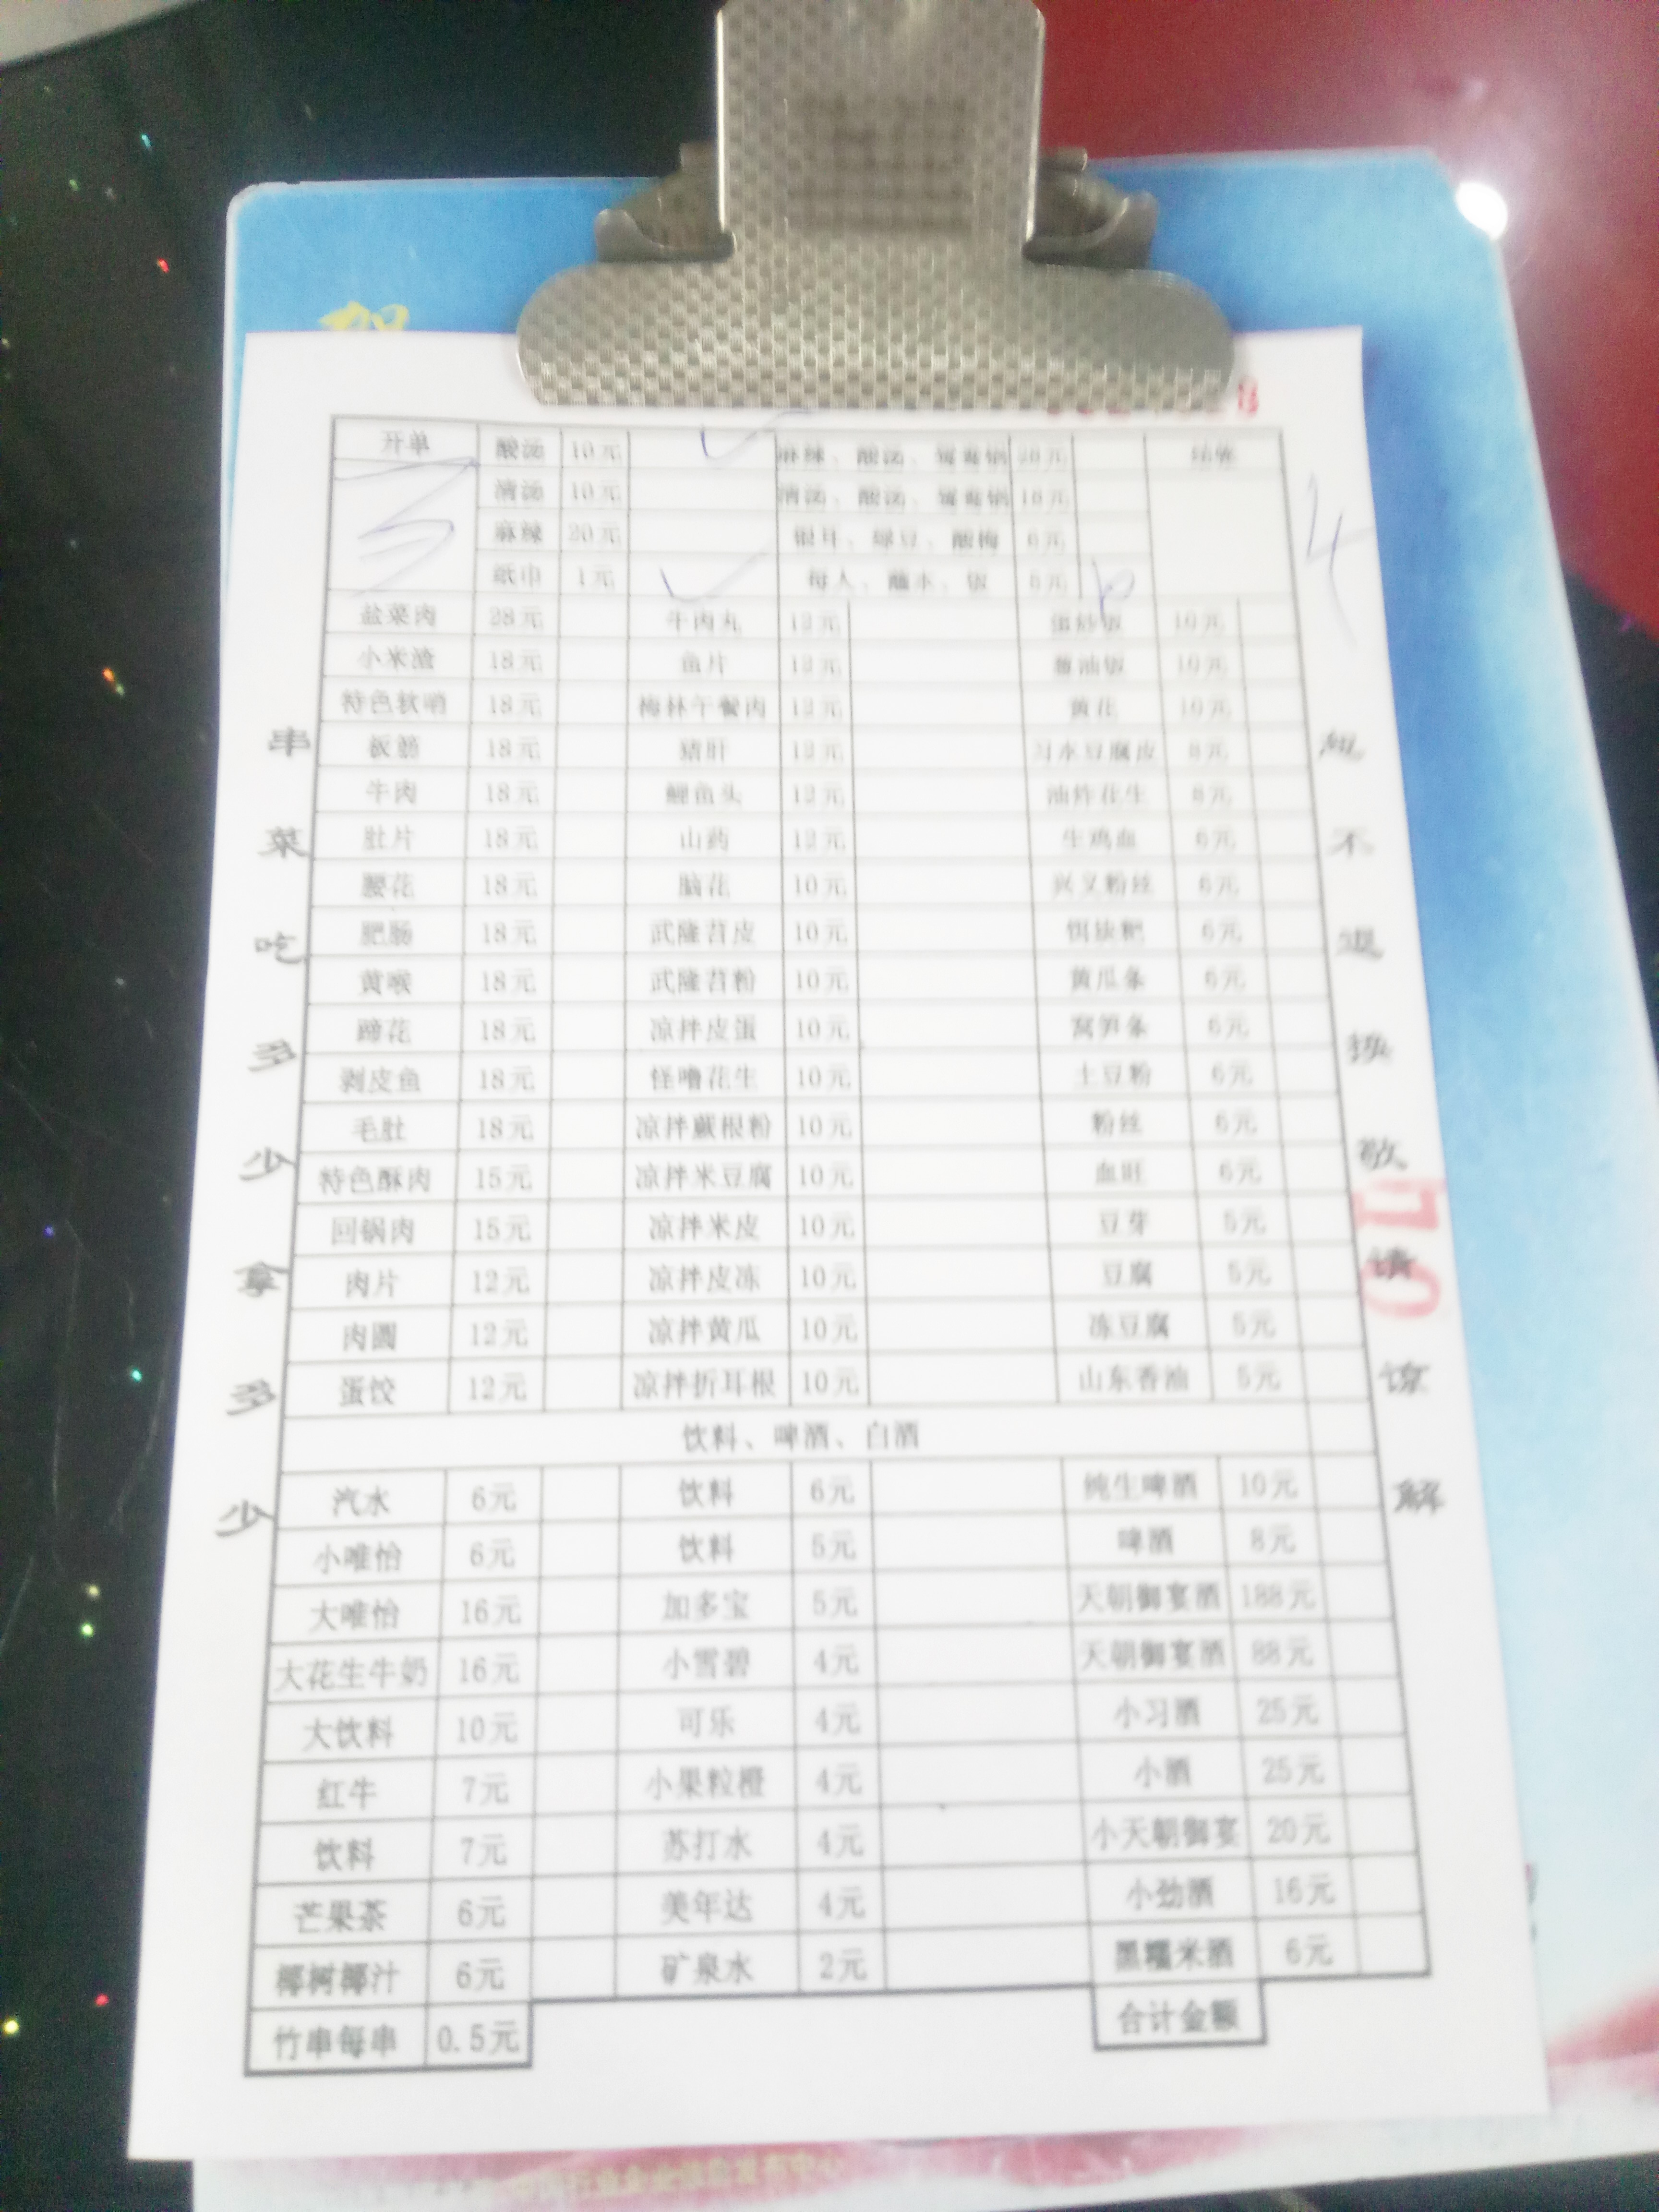 开单 酸汤 10元 麻辣、酸汤、鸳鸯锅 20元 结账
清汤 10元 清汤、酸汤、鸳鸯锅 16元
麻辣 20元 银耳、绿豆、酸梅 6元
纸巾 1元 每人、蘸水、饭 6元
盐菜肉 28元 牛肉丸 12元 蛋炒饭 10元
小米渣 18元 鱼片 12元 葱油饭 10元
特色软哨 18元 梅林午餐肉 12元 黄花 10元
板筋 18元 猪肝 12元 习水豆腐皮 8元
牛肉 18元 鲤鱼头 12元 油炸花生 8元
肚片 18元 山药 12元 生鸡血 6元
腰花 18元 脑花 10元 兴义粉丝 6元
肥肠 18元 武隆苕皮 10元 饵块粑 6元
黄喉 18元 武隆苕粉 10元 黄瓜条 6元
蹄花 18元 凉拌皮蛋 10元 窝笋条 6元
剥皮鱼 18元 怪噜花生 10元 土豆粉 6元
毛肚 18元 凉拌蕨根粉 10元 粉丝 6元
特色酥肉 15元 凉拌米豆腐 10元 血旺 6元
回锅肉 15元 凉拌米皮 10元 豆芽 5元
肉片 12元 凉拌皮冻 10元 豆腐 5元
肉圆 12元 凉拌黄瓜 10元 冻豆腐 5元
蛋饺 12元 凉拌折耳根 10元 山东香油 5元
饮料、啤酒、白酒
汽水 6元 饮料 6元 纯生啤酒 10元
小唯怡 6元 饮料 5元 啤酒 8元
大唯怡 16元 加多宝 5元 天朝御宴酒 188元
大花生牛奶 16元 小雪碧 4元 天朝御宴酒 88元
大饮料 10元 可乐 4元 小习酒 25元
红牛 7元 小果粒橙 4元 小酒 25元
饮料 7元 苏打水 4元 小天朝御宴 20元
芒果茶 6元 美年达 4元 小劲酒 16元
椰树椰汁 6元 矿泉水 2元 黑糯米酒 6元
竹串每串 0.5元 合计金额
串菜吃多少拿多少
不退换敬请谅解
4